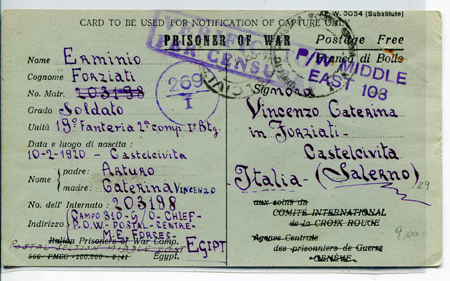 A.F.W. 3054 (Substitute)
CARD TO BE USED FOR NOTIFICATION OF CAPTURE ONLY
PRISONER OF WAR
Postage Free
Franco di Bollo
P/W MIDDLE
EAST 108
269
I
Nome Erminio
Cognome Forziati
No. Matr. 203198
Grado Soldato
Unità 19º Fanteria 2ª comp. Iº Btg.
Data e luogo di nascita:
10-2-1920 - Castelcivita
Nome
padre: Arturo
madre: Caterina VINCENZO
No. dell' Internato: 203198
Indirizzo CAMPO 310-G/O-CHIEF-
P.O.W-POSTAL-CENTRE-
M.E. FORCES-
EGIPT
Italian Prisoners of War Camp,
Egypt.
Signora
Vincenzo Caterina
in Forziati-
Castelcivita
Italia- (Salerno)
29
aux soins du
COMITÉ INTERNATIONAL
de la CROIX ROUGE
Agence Centrale
des prisonniers de Guerre
GENÈVE
9,00